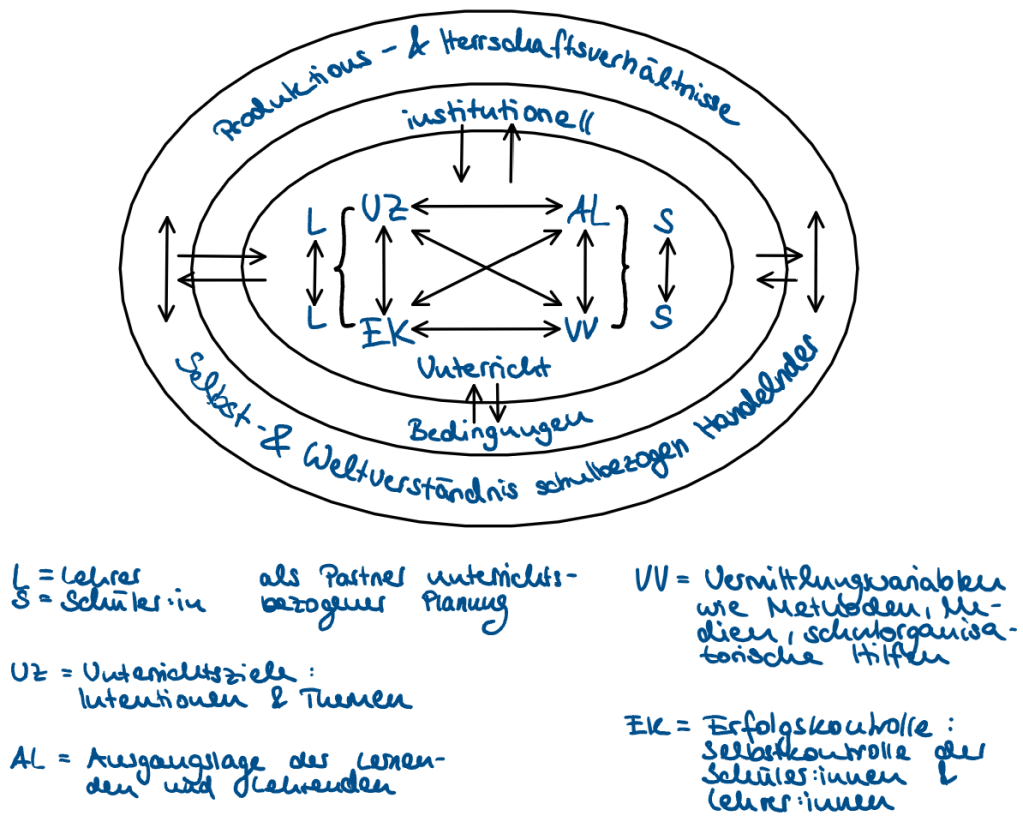 Produktions- & Herrschaftsverhältnisse
institutionell
L UZ AL S
L EK VV S
Unterricht
Bedingungen
Selbst- & Weltverständnis schulbezogen Handelnder
L = Lehrer
S = Schüler:in
als Partner unterrichts-
bezogener Planung
UZ = Unterrichtsziele:
Intentionen & Themen
AL = Ausgangslage der Lernen-
den und Lehrenden
VV = Vermittlungvariablen
wie Methoden, Me-
dien, schulorganisa-
torische Hilfen
EK = Erfolgskontrolle:
Selbstkontrolle der
Schüler:innen &
Lehrer:innen